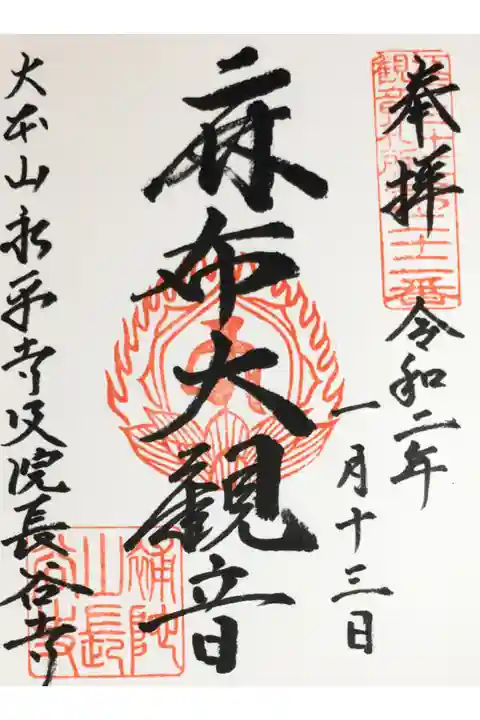 奉拝
江戸三十三
観音札所第二十二番
令和二年
一月十三日
麻布大観音
大本山永平寺別院長谷寺
補陀
山長
谷寺